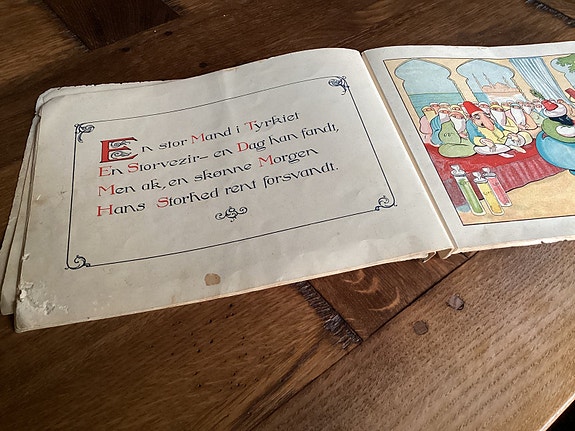 En stor Mand i Tyrkiet
En Storvezir- en Dag han fandt,
Men ak, en skønne Morgen
Hans Storhed rent forsvandt.